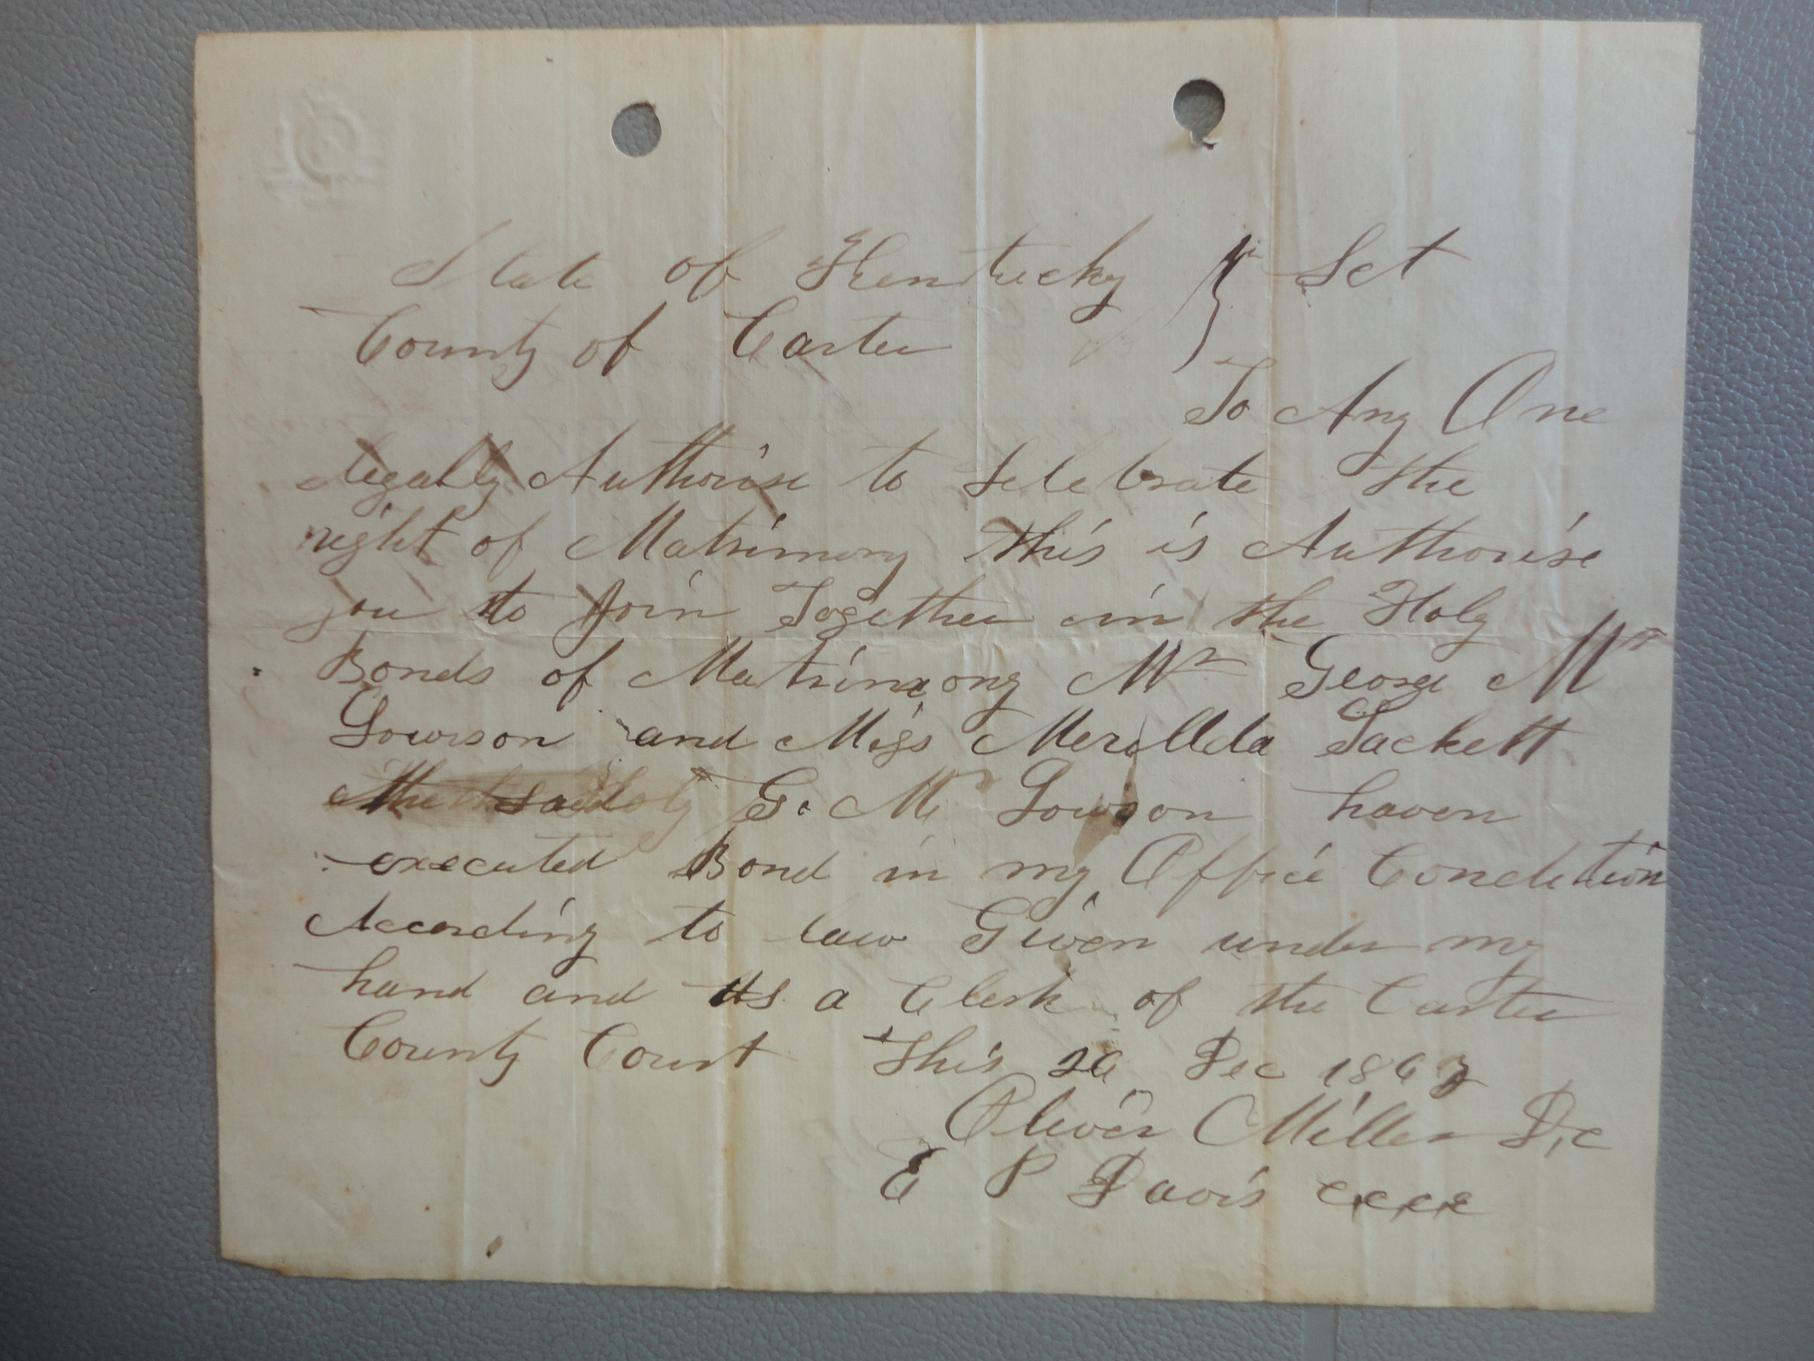 State of Kentucky } Sct
County of Carter
To Any One
legally Authorise to Selebrate the
right of Matrimony this is Authorise
you to Join Together in the Holy
Bonds of Matrimony Mr George Mc
Gowson and Miss Merillda Sackett
the said G. Mc Gowson haven
executed Bond in my Office Condition
According to law Given under my
hand and as a Clerk of the Carter
County Court This 26 Dec 1867
Oliver Miller D,c
E P Davis c,c,c,c